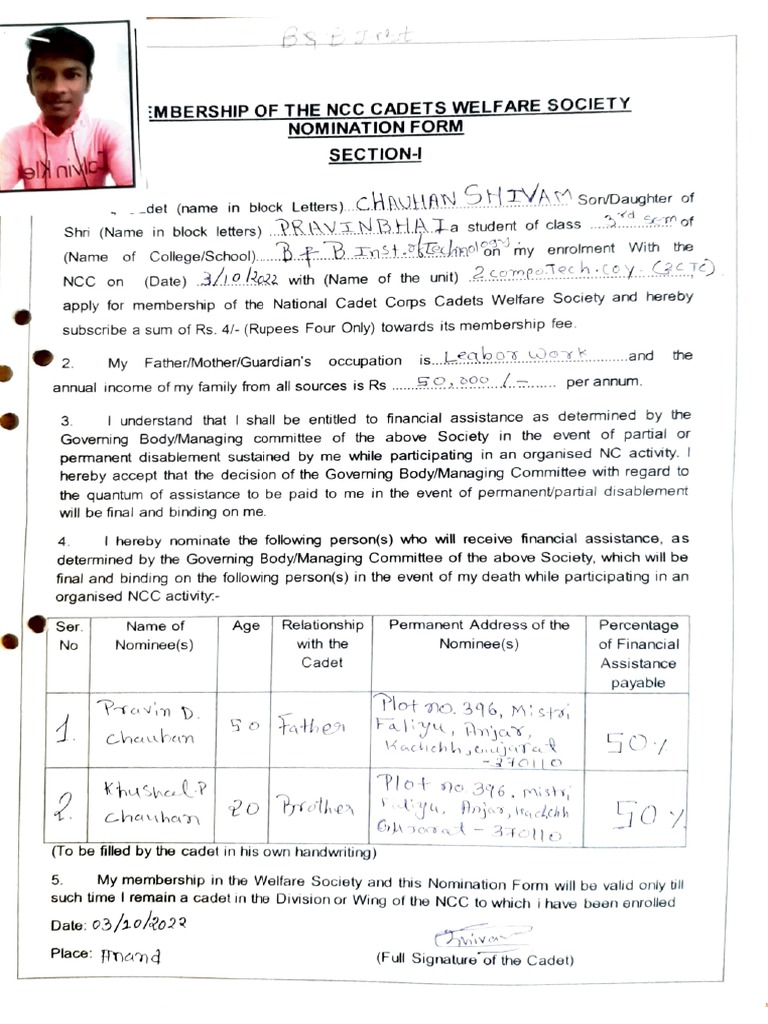 B & B Inst
EMBERSHIP OF THE NCC CADETS WELFARE SOCIETY
NOMINATION FORM
SECTION-I
det (name in block Letters)..CHAUHAN SHIVAM Son/Daughter of
Shri (Name in block letters) PRAVINBHAI a student of class ..3rd sem of
(Name of College/School)..B & B Inst. of Technology. on my enrolment With the
NCC on (Date) 3/10/2022 with (Name of the unit) 2 compo Tech. coy - (2CTC)
apply for membership of the National Cadet Corps Cadets Welfare Society and hereby
subscribe a sum of Rs. 4/- (Rupees Four Only) towards its membership fee.
2. My Father/Mother/Guardian's occupation is...Leabor Work...and the
annual income of my family from all sources is Rs ....50,000/-........ per annum.
3. I understand that I shall be entitled to financial assistance as determined by the
Governing Body/Managing committee of the above Society in the event of partial or
permanent disablement sustained by me while participating in an organised NC activity. I
hereby accept that the decision of the Governing Body/Managing Committee with regard to
the quantum of assistance to be paid to me in the event of permanent/partial disablement
will be final and binding on me.
4. I hereby nominate the following person(s) who will receive financial assistance, as
determined by the Governing Body/Managing Committee of the above Society, which will be
final and binding on the following person(s) in the event of my death while participating in an
organised NCC activity:-
Ser. Name of Age Relationship Permanent Address of the Percentage
No Nominee(s) with the Nominee(s) of Financial
Cadet Assistance
payable
1. Pravin D. 50 Father Plot no. 396, Mistri 50%
Chauhan Faliyu, Anjar,
Kachchh, Gujarat
-370110
2. Khushal.P 20 Brother Plot no 396, Mistri 50%
Chauhan Faliyu, Anjar, Kachchh
Gujarat - 370110
(To be filled by the cadet in his own handwriting)
5. My membership in the Welfare Society and this Nomination Form will be valid only till
such time I remain a cadet in the Division or Wing of the NCC to which i have been enrolled
Date: 03/10/2022
Shivam
Place: Anand
(Full Signature of the Cadet)